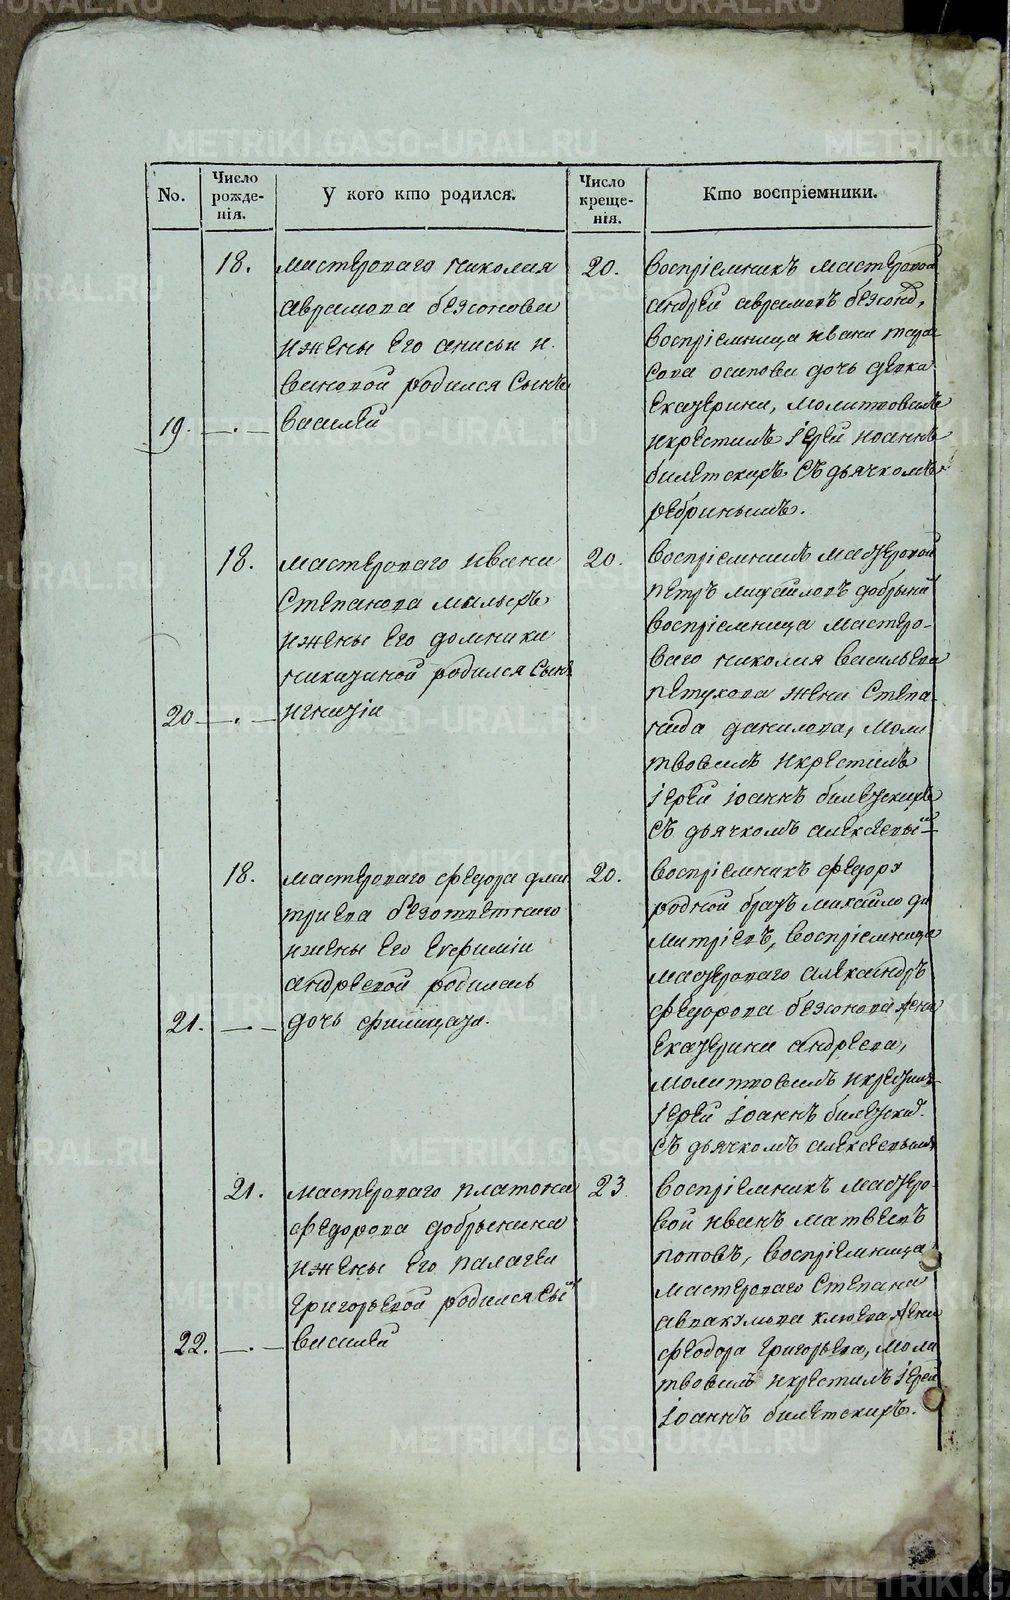 No.
Число рожде-нія.
У кого кто родился.
Число креще-нія.
Кто воспріемники.
18.
мастероваго николая
аврамова безсонова
ижены его анисьи и
вановой родился сынъ
19.
василей
20.
воспріемникъ мастеровой
андрей аврамовъ безсонов,
воспріемница ивана тара
сова осипова дочь девка
екатерина, молитвовалъ
икрестилъ іерей иоаннъ
билетскихъ съ дьячкомъ
ребринымъ.
18.
мастероваго ивана
степанова
ижены его домники
никитиной родился сынъ
20
игнатіи
20.
воспріемникъ мастеровой
петръ михайловъ добрынин
воспріемница мастеро-
ваго николая васильева
петухова жена степа-
нида данилова, моли
твовалъ икрестилъ
іерей іоаннъ билетскихъ
съ дьячкомъ алексеевы
18.
мастероваго федора дми
триева безответнаго
ижены его евфиміи
андреевой родилась
21.
дочь филицата.
20.
воспріемникъ федора
родной братъ михайло ди
митріевъ, воспріемница
мастероваго александръ
федорова безсонова жена
екатерина андреева,
молитвовалъ икрестилъ
іерей іоаннъ билетских.
съ дьячкомъ алексеевымъ
21.
мастероваго платона
федорова добрынина
ижены его палагеи
григорьевой родился сы
22.
василей
23
воспріемникъ мастеро
вой иванъ матвеевъ
поповъ, воспріемница
мастероваго степана
авакумова клюева жена
феодора григорьева, моли
твовалъ икрестилъ іерей
іоаннъ билетскихъ.
METRIKI.GASO-URAL.RU